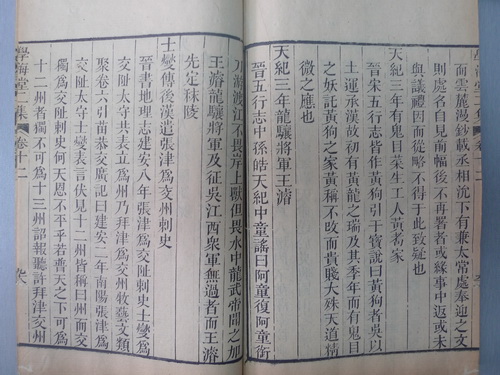 而雲麓漫鈔載丞相沈下有兼太常處奉迎之文
則處名自見前幅後不再署者或緣事中返或未
與議禮因而從略不得于此致疑也
天紀三年有鬼目菜生工人黃耇家
晉宋五行志皆作黃狗引干寶說曰黃狗者吳以
土運承漢故初有黃龍之瑞及其季年而有鬼目
之妖託黃狗之家黃稱不攺而貴賤大殊天道精
微之應也
天紀三年龍驤將軍王濬
晉五行志中孫皓天紀中童謠曰阿童復阿童銜
刀游渡江不畏岸上獸但畏水中龍武帝聞之加
王濬龍驤將軍及征吳江西眾軍無過者而王濬
先定秣陵
士燮傳後漢遣張津爲交州刺史
晉書地理志建安八年張津爲交阯刺史士燮爲
交阯太守共表立爲州乃拜津爲交州牧藝文類
聚卷六引苗恭交廣記曰建安二年南陽張津爲
交阯太守士燮表言伏見十二州皆稱曰州而交
獨爲交阯刺史何天恩不平乎若普天之下可爲
十二州者獨不可爲十三州詔報聽許拜津交州
學海堂二集
卷十二